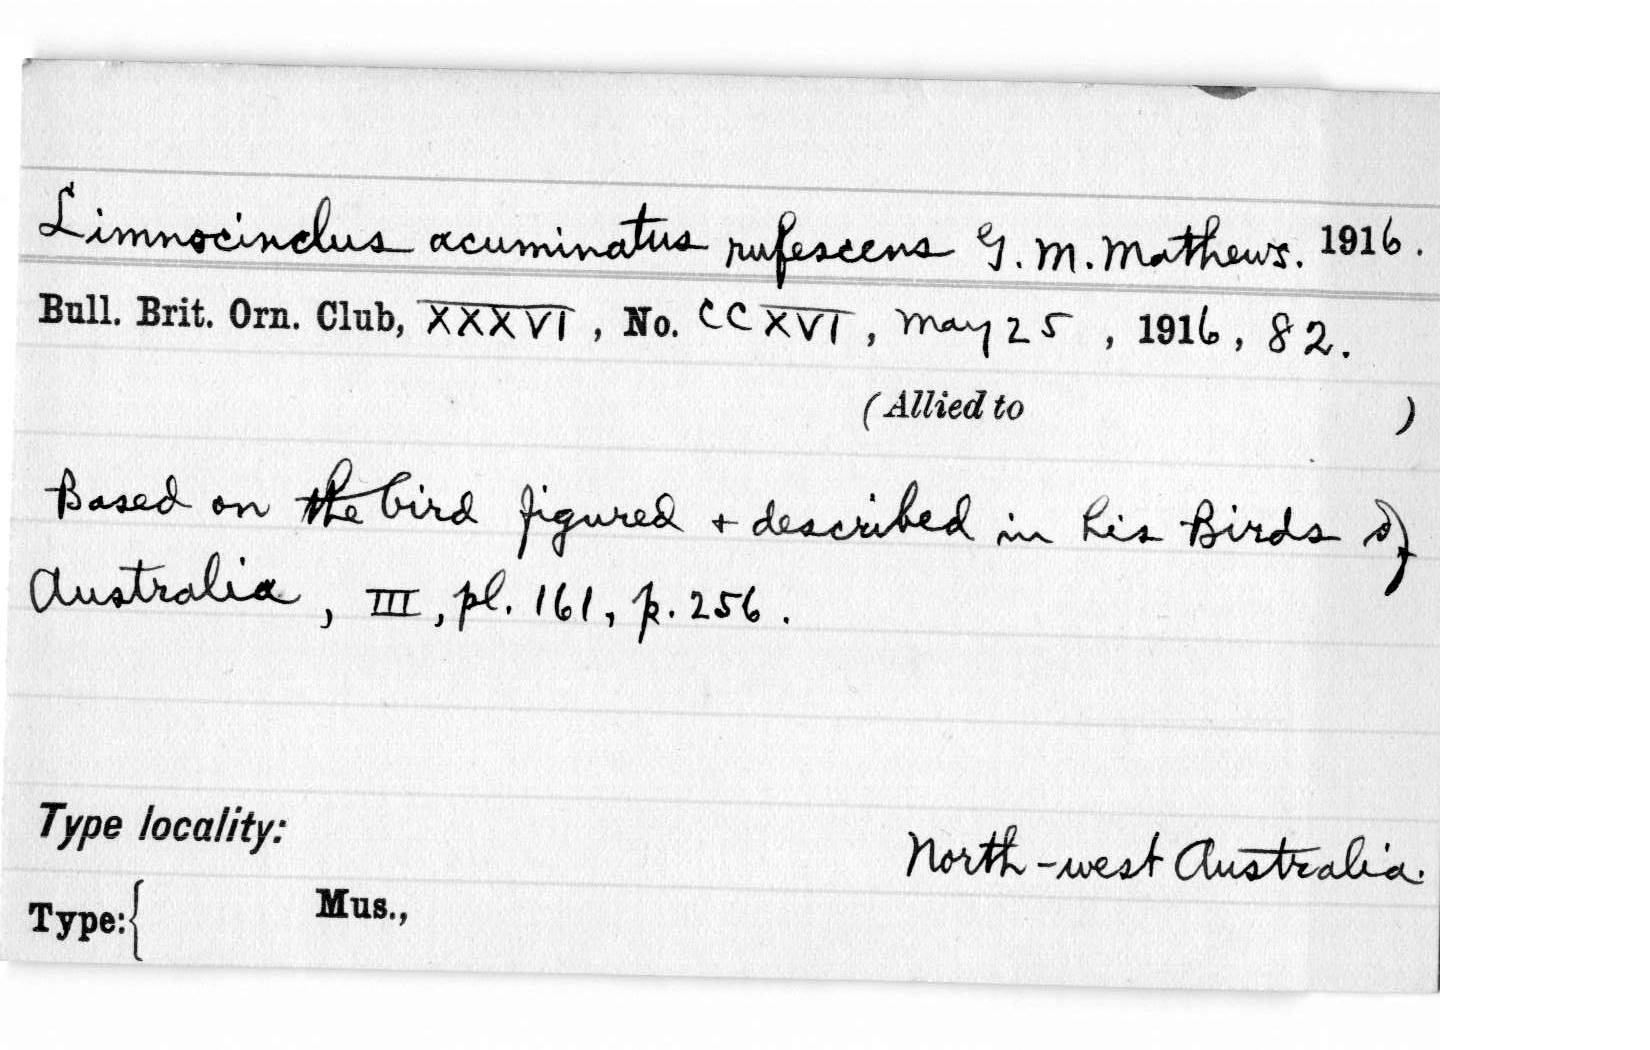 Limnocinclus acuminatus rufescens G. M. Mathews. 1916.
Bull. Brit. Orn. Club, XXXVI, No. CCXVI, May 25, 1916, 82.
(Allied to )
Based on the bird figured + described in his Birds of
Australia, III, pl. 161, p. 256.
Type locality:
North-west Australia.
Type:{ Mus.,